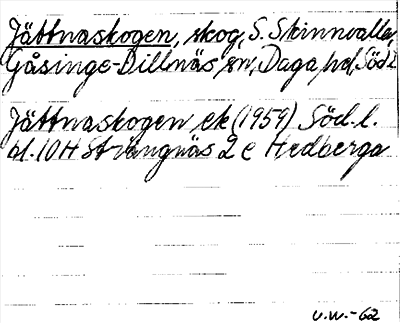 Jättnaskogen, skog, S. Skinnvalla,
Gåsinge-Dillnäs sn, Daga hd, Södl.
Jättnaskogen ek (1959) Söd. l.
bl. 10 H Strängnäs 2 c Hedberga
U.W.-62